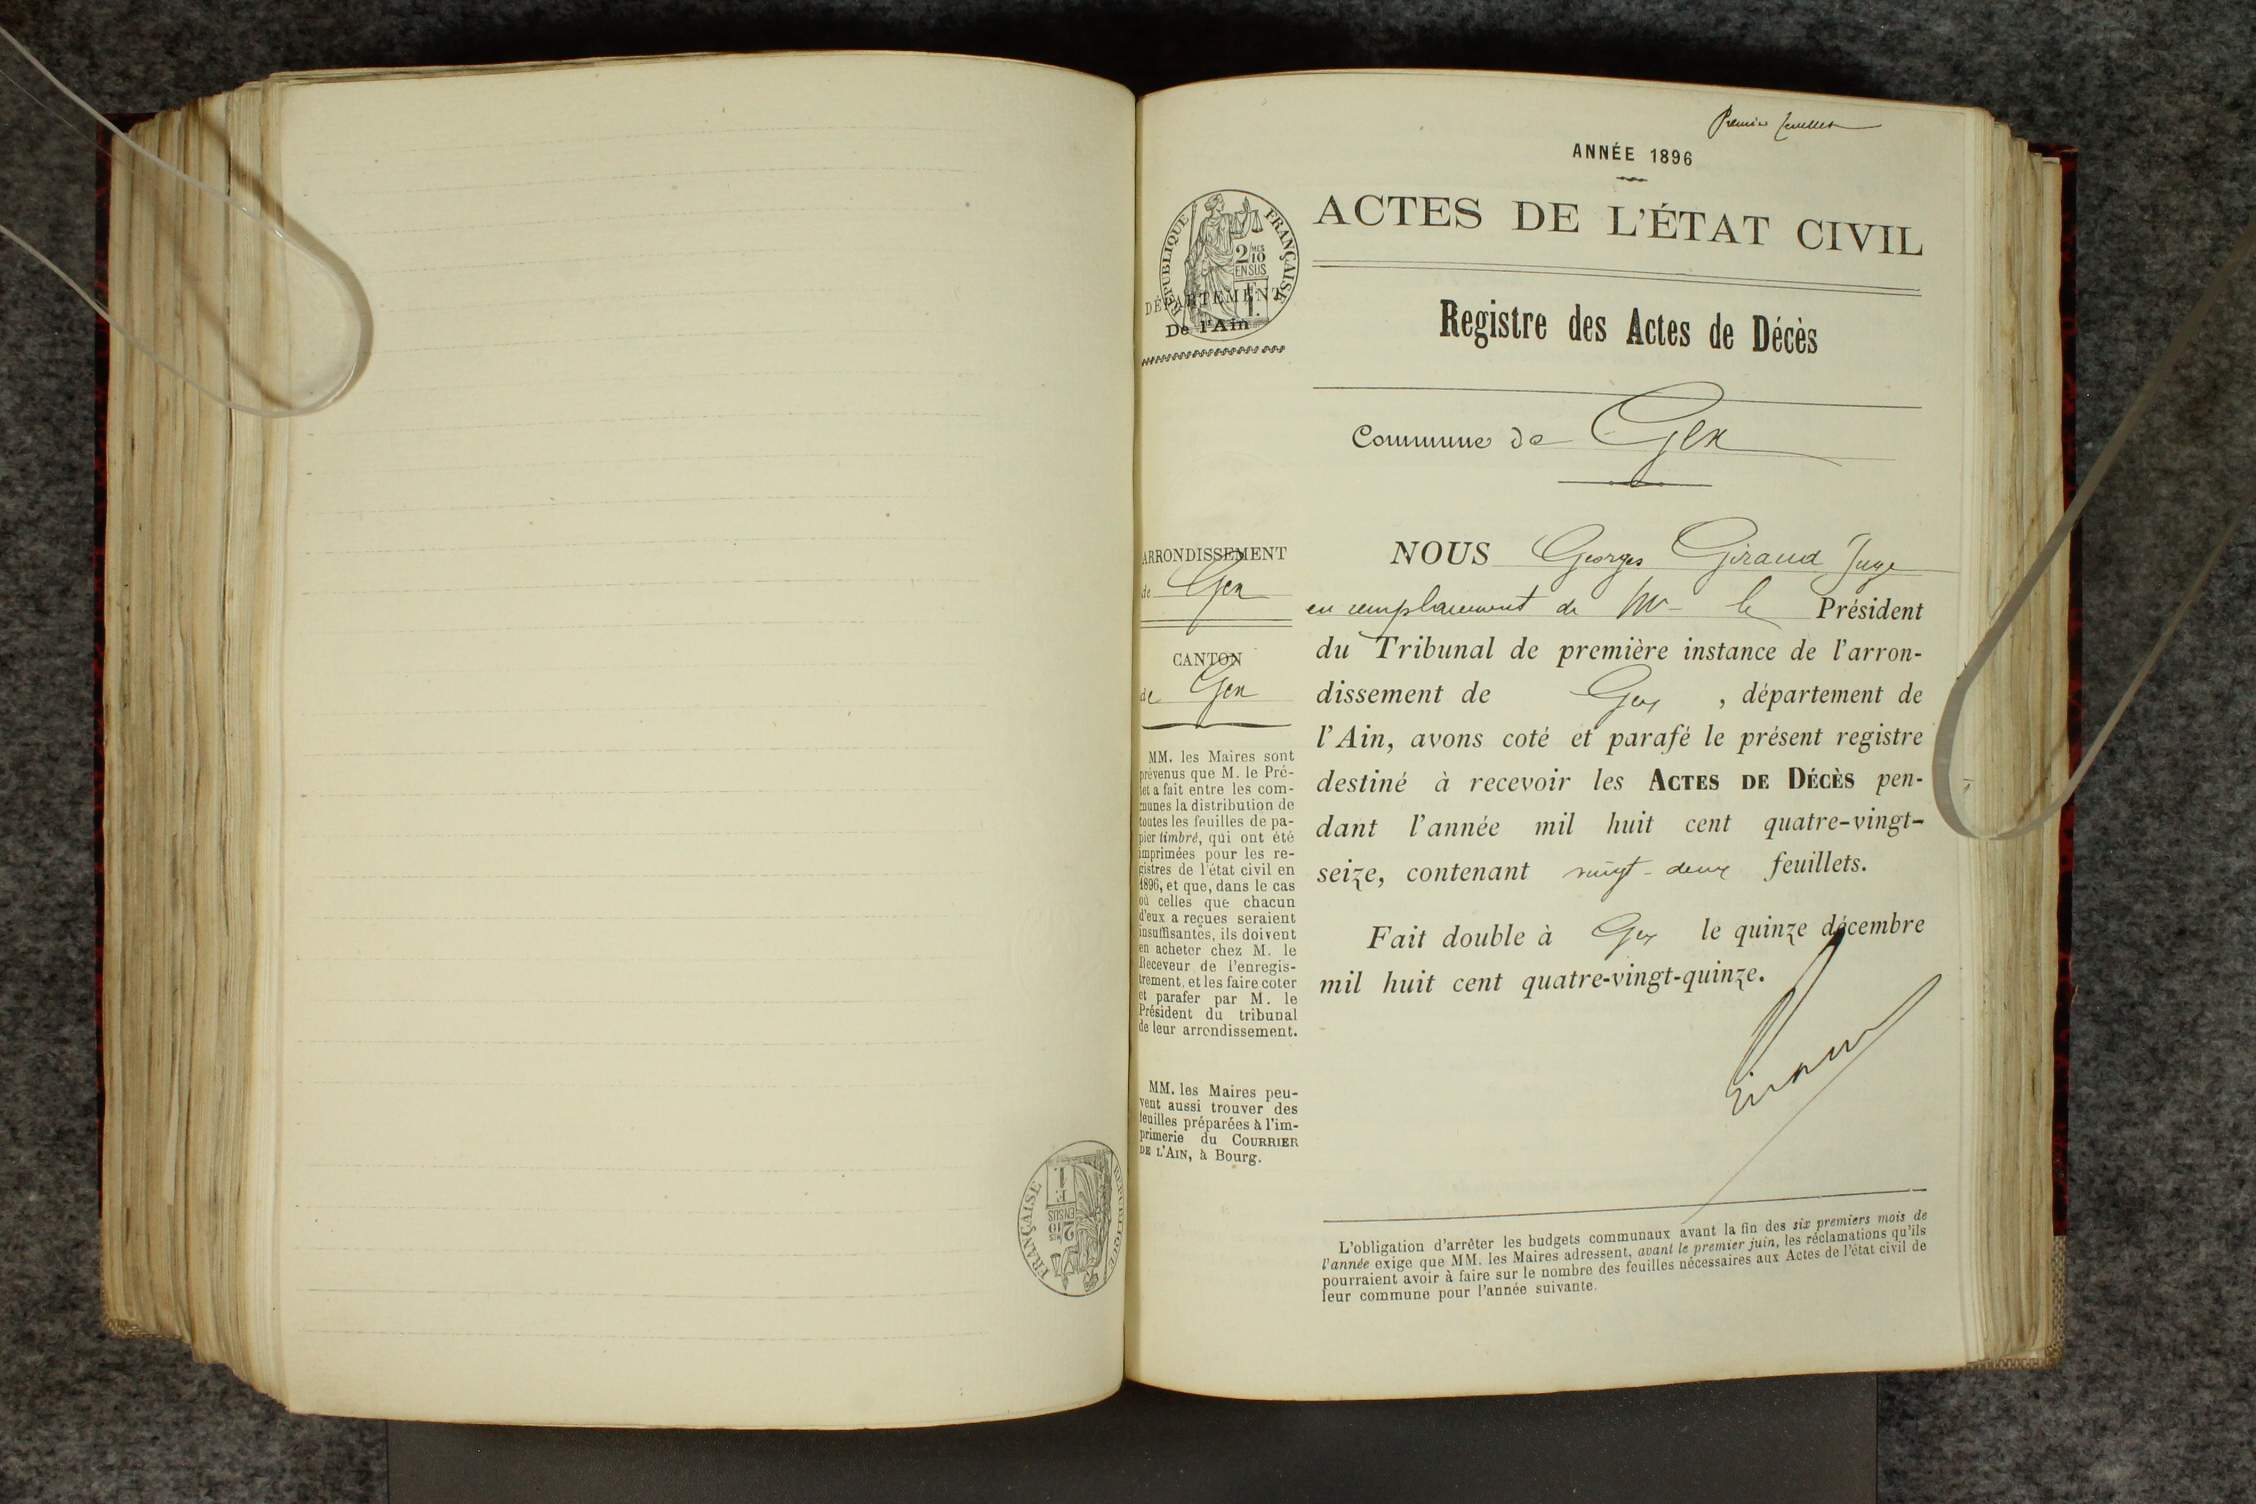 Premier feuillet
ANNÉE 1896
ACTES DE L'ÉTAT CIVIL
RÉPUBLIQUE FRANÇAISE
2/10MES
EN SUS
1 F.
DÉPARTEMENT
De l'Ain
Registre des Actes de Décès
Commune de Gex
ARRONDISSEMENT
de Gex
CANTON
de Gex
MM. les Maires sont
prévenus que M. le Pré-
fet a fait entre les com-
munes la distribution de
toutes les feuilles de pa-
pier timbré, qui ont été
imprimées pour les re-
gistres de l'état civil en
1896, et que, dans le cas
où celles que chacun
d'eux a reçues seraient
insuffisantes, ils doivent
en acheter chez M. le
Receveur de l'enregis-
trement, et les faire coter
et parafer par M. le
Président du tribunal
de leur arrondissement.
MM. les Maires peu-
vent aussi trouver des
feuilles préparées à l'im-
primerie du COURRIER
DE L'AIN, à Bourg.
NOUS Georges Giraud Juge
en remplacement de Mr le Président
du Tribunal de première instance de l'arron-
dissement de Gex, département de
l'Ain, avons coté et parafé le présent registre
destiné à recevoir les ACTES DE DÉCÈS pen-
dant l'année mil huit cent quatre-vingt-
seize, contenant vingt-deux feuillets.
Fait double à Gex le quinze décembre
mil huit cent quatre-vingt-quinze.
Giraud
L'obligation d'arrêter les budgets communaux avant la fin des six premiers mois de
l'année exige que MM. les Maires adressent, avant le premier juin, les réclamations qu'ils
pourraient avoir à faire sur le nombre des feuilles nécessaires aux Actes de l'état civil de
leur commune pour l'année suivante.
RÉPUBLIQUE FRANÇAISE
2/10MES
EN SUS
1 F.